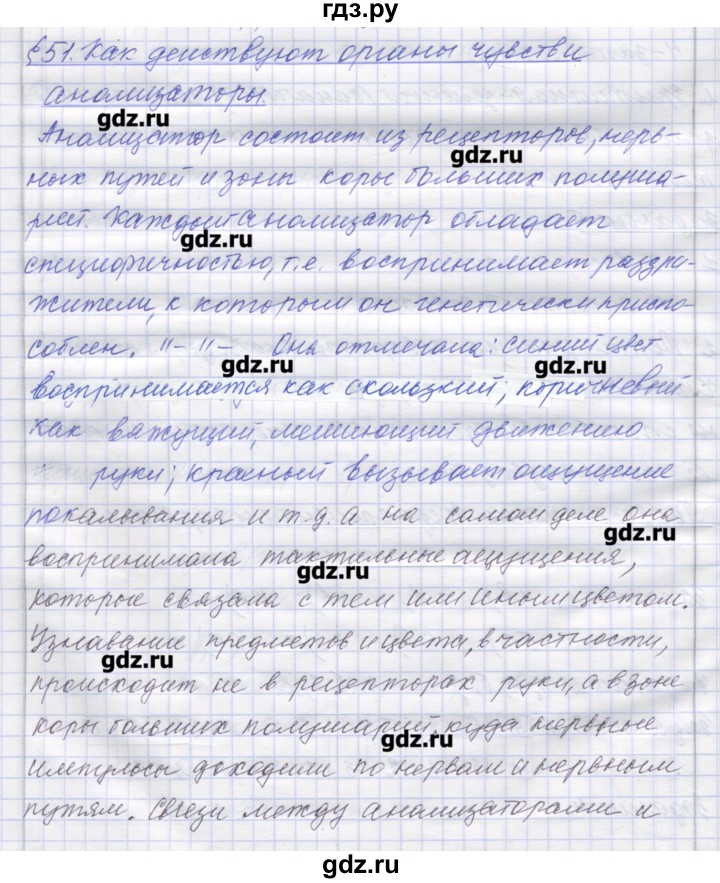 гдз.ру
§51. Как действуют органы чувств и
анализаторы.
gdz.ru
Анализатор состоит из рецепторов, нерв-
gdz.ru
ных путей и зоны коры больших полуша-
рий. Каждый анализатор обладает
gdz.ru
специфичностью, т.е. воспринимает раздра-
жители, к которым он генетически приспо-
соблен. "-"- Она отмечала: синий цвет
gdz.ru gdz.ru
воспринимается как скользкий; коричневый
как вяжущий, мешающий движению
руки; красный вызывает ощущение
покалывания и т.д. а на самом деле она
gdz.ru
воспринимала тактильные ощущения,
gdz.ru
которые связала с тем или иным цветом.
Узнавание предметов и цвета, в частности,
gdz.ru
происходит не в рецепторах руки, а в зоне
коры больших полушарий, куда нервные
gdz.ru
импульсы доходили по нервам и нервным
путям. Связи между анализаторами и
gdz.ru